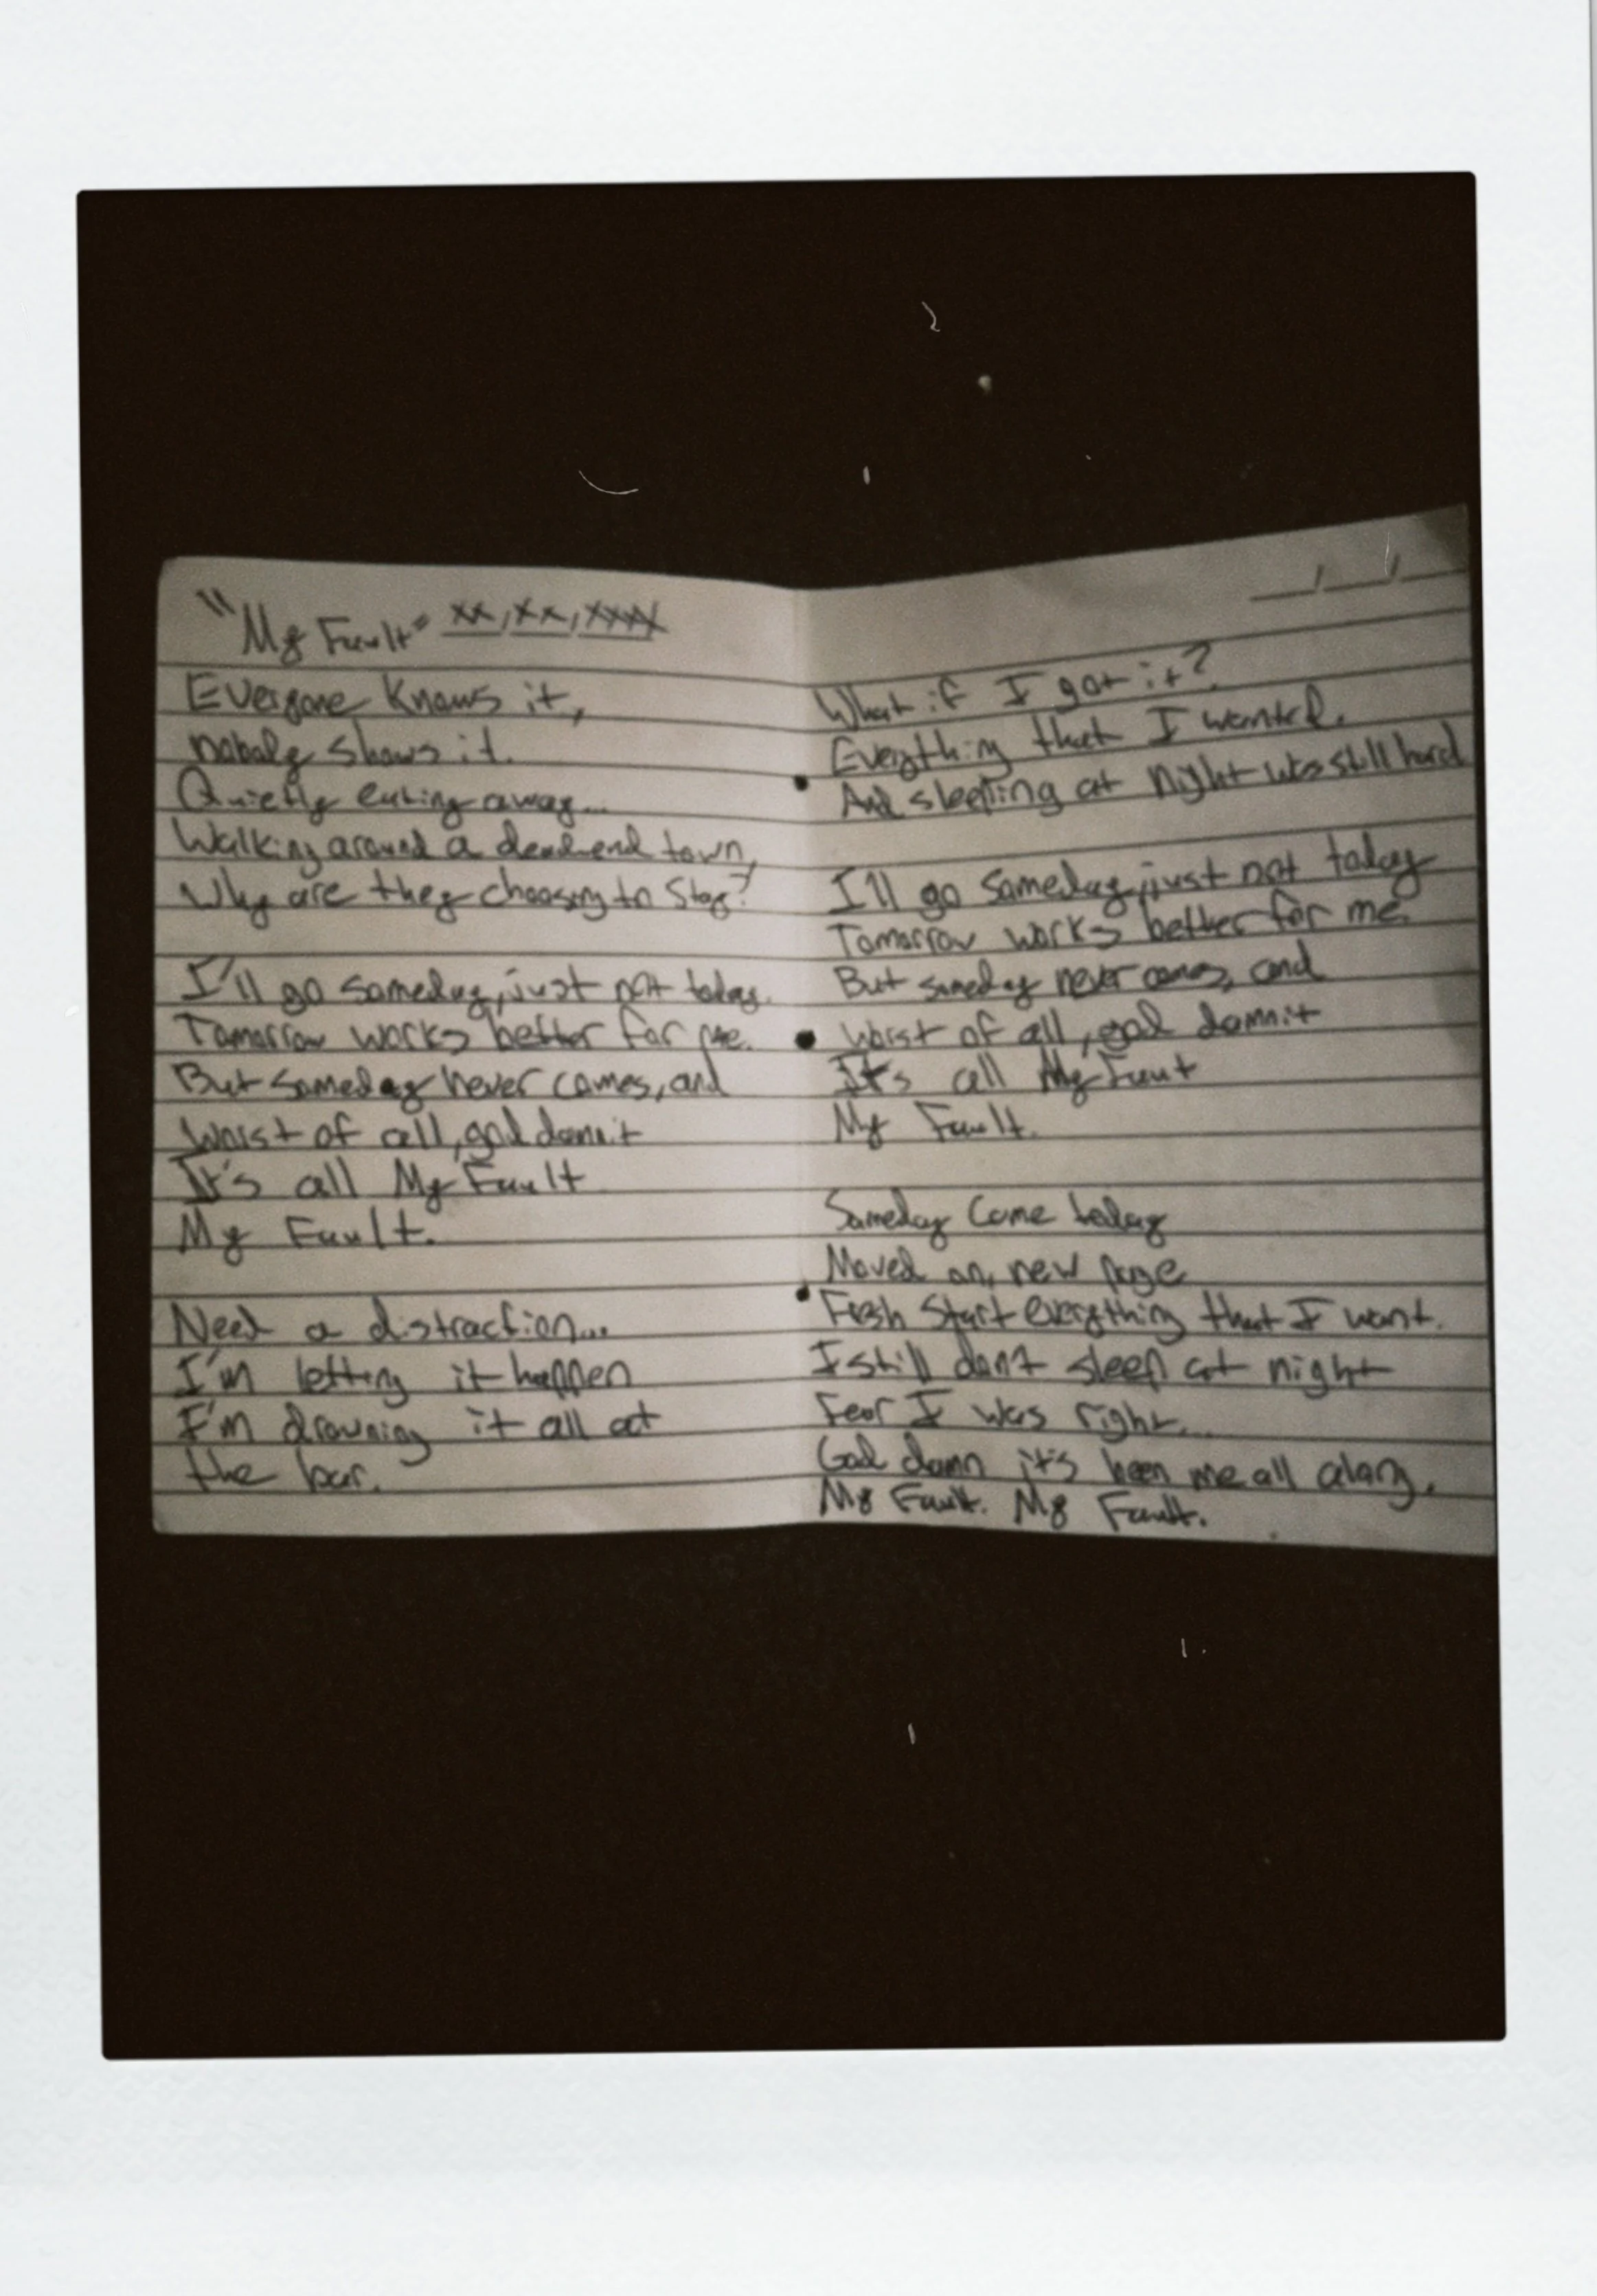 "My Fault" xx/xx/xxxx
Everyone knows it,
nobody shows it.
Quietly eating away...
Walking around a deadend town,
Why are they choosing to stay?
I'll go someday, just not today.
Tomorrow works better for me.
But someday never comes, and
Worst of all, god damnit
It's all My Fault
My Fault.
Need a distraction...
I'm letting it happen
I'm drowning it all at
the bar.
What if I got it?
Everything that I wanted.
And sleeping at night was still hard
I'll go someday, just not today
Tomorrow works better for me.
But someday never comes, and
Worst of all, god damnit
It's all My Faut
My Fault.
Someday came today
Moved on, new page
Fresh Start everything that I want.
I still don't sleep at night
Fear I was right...
God damn it's been me all along.
My Fault. My Fault.